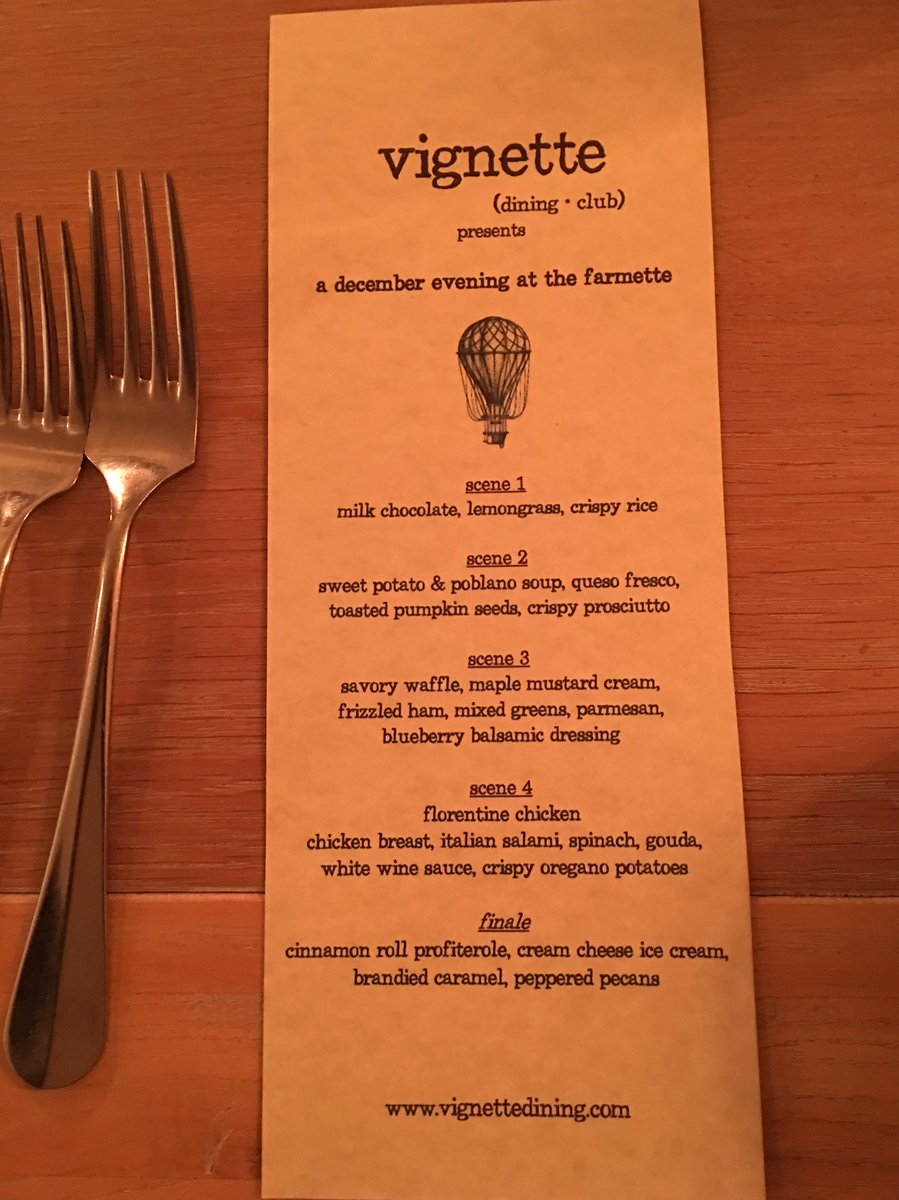 vignette
(dining · club)
presents
a december evening at the farmette
scene 1
milk chocolate, lemongrass, crispy rice
scene 2
sweet potato & poblano soup, queso fresco,
toasted pumpkin seeds, crispy prosciutto
scene 3
savory waffle, maple mustard cream,
frizzled ham, mixed greens, parmesan,
blueberry balsamic dressing
scene 4
florentine chicken
chicken breast, italian salami, spinach, gouda,
white wine sauce, crispy oregano potatoes
finale
cinnamon roll profiterole, cream cheese ice cream,
brandied caramel, peppered pecans
www.vignettedining.com